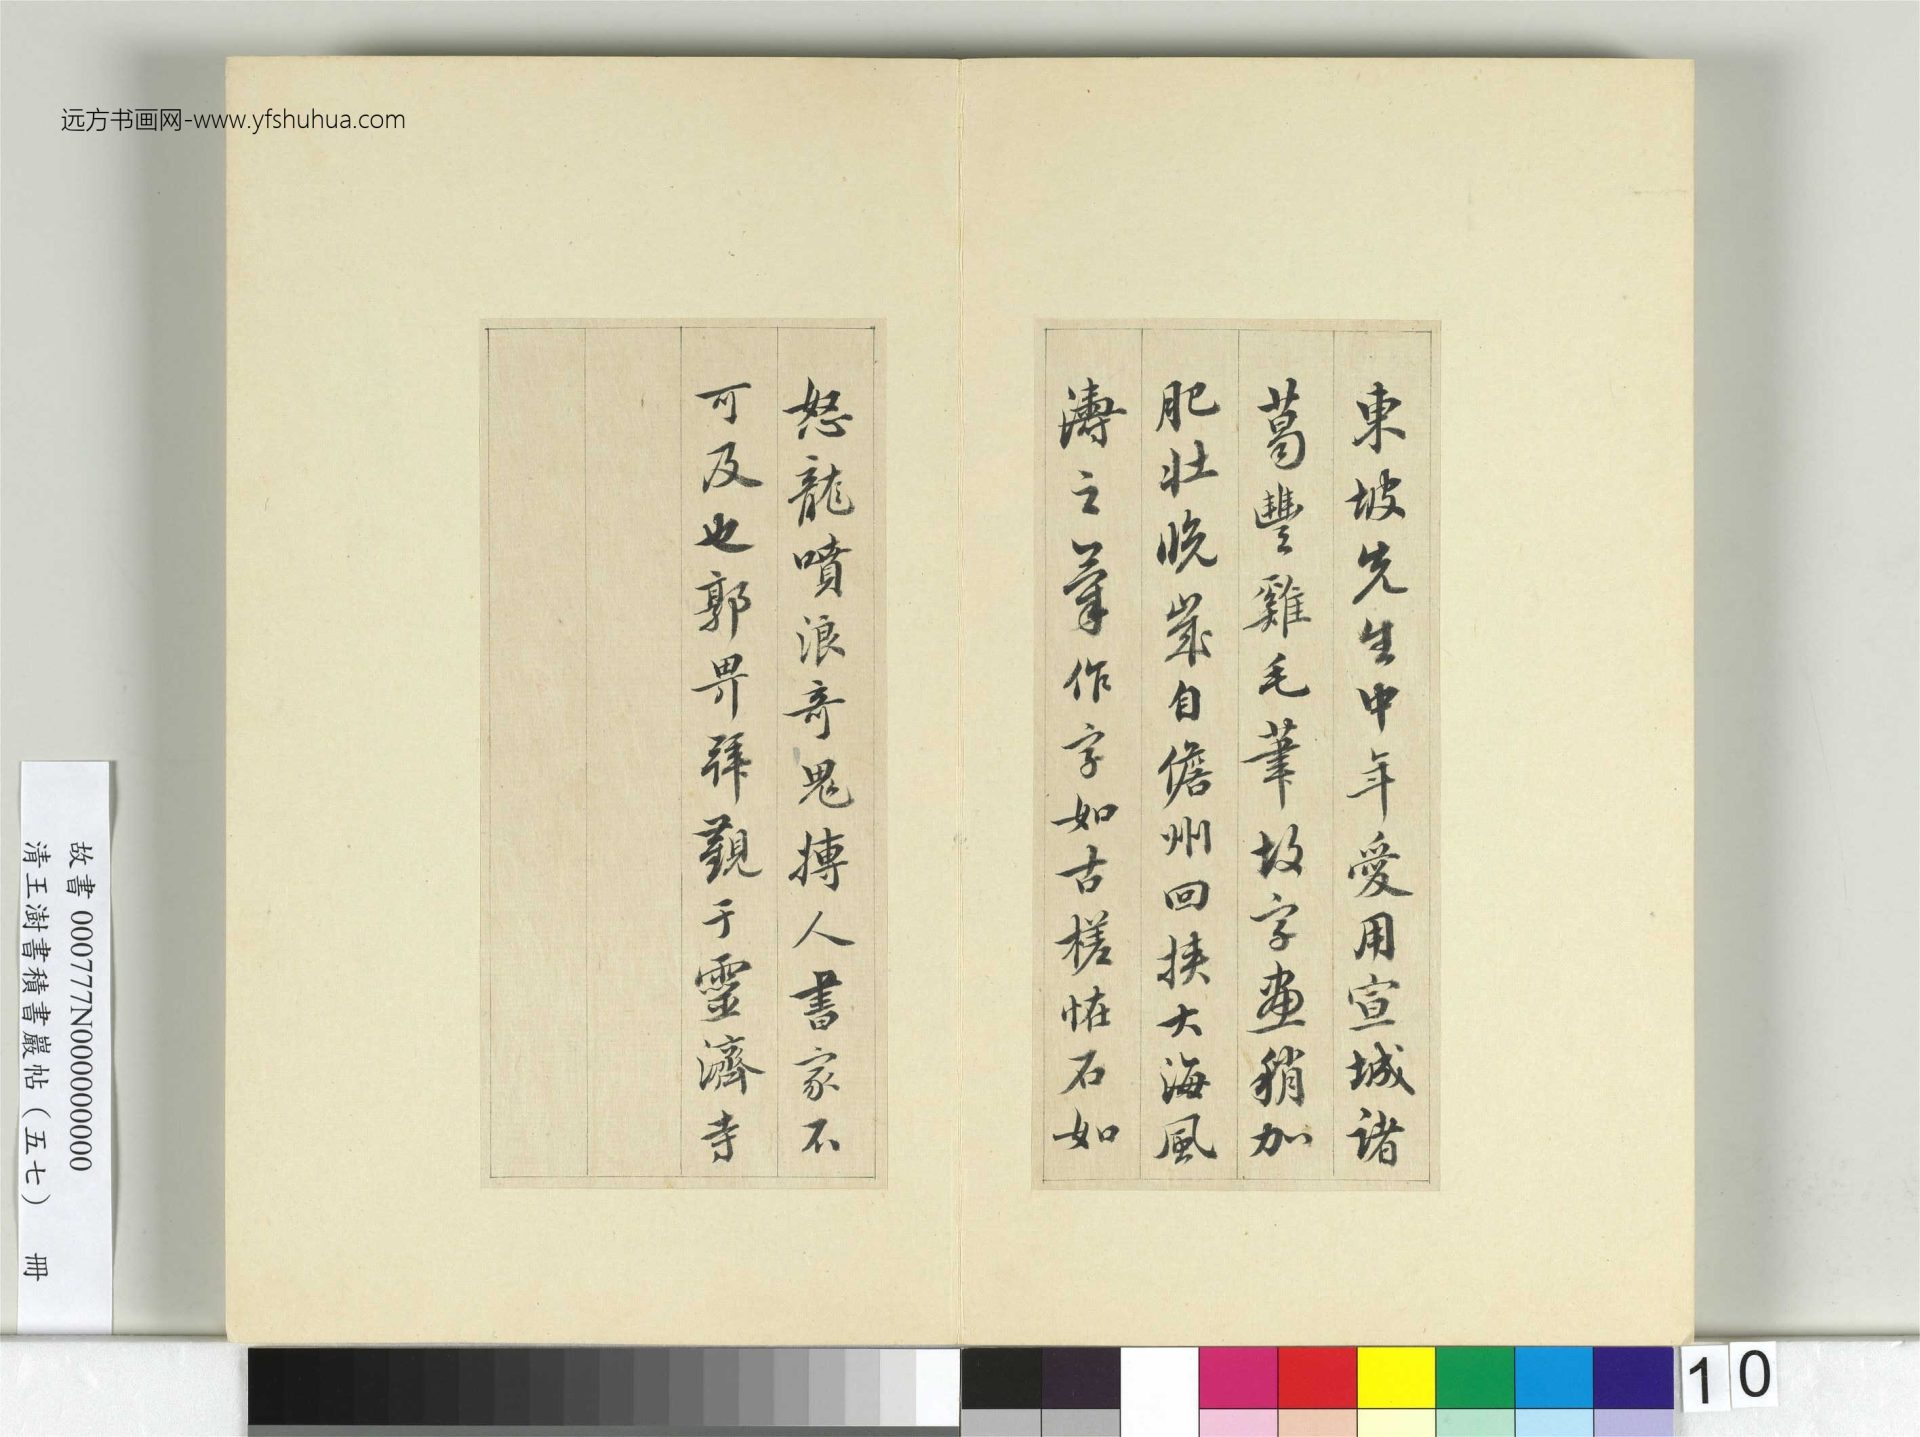 远方书画网-www.yfshuhua.com
東坡先生中年愛用宣城諸
葛豐雞毛筆故字畫稍加
肥壯晚歲自儋州回挾大海風
濤之筆作字如古槎怪石如
怒龍噴浪奇鬼搏人書家不
可及也郭畀拜觀于靈濟寺
故書 000777N000000000
清王澍書積書巖帖(五七) 冊
10